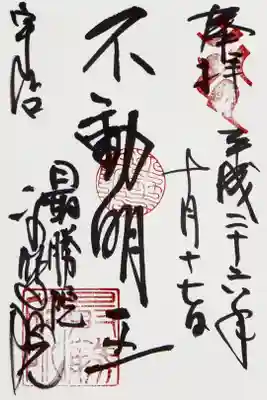 奉拝
平成二十六年
十月十七日
不動明王
宇治
最勝院